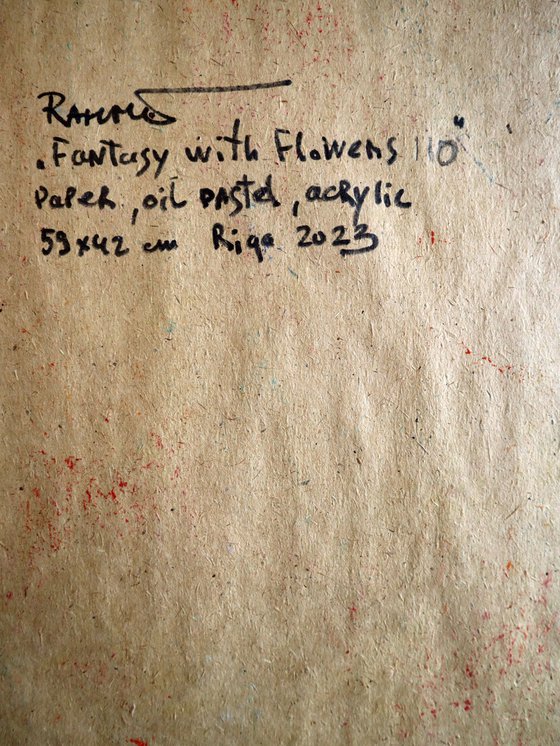 „Fantasy with Flowers 110"
Paper, oil pastel, acrylic
59x42 cm Riga 2023